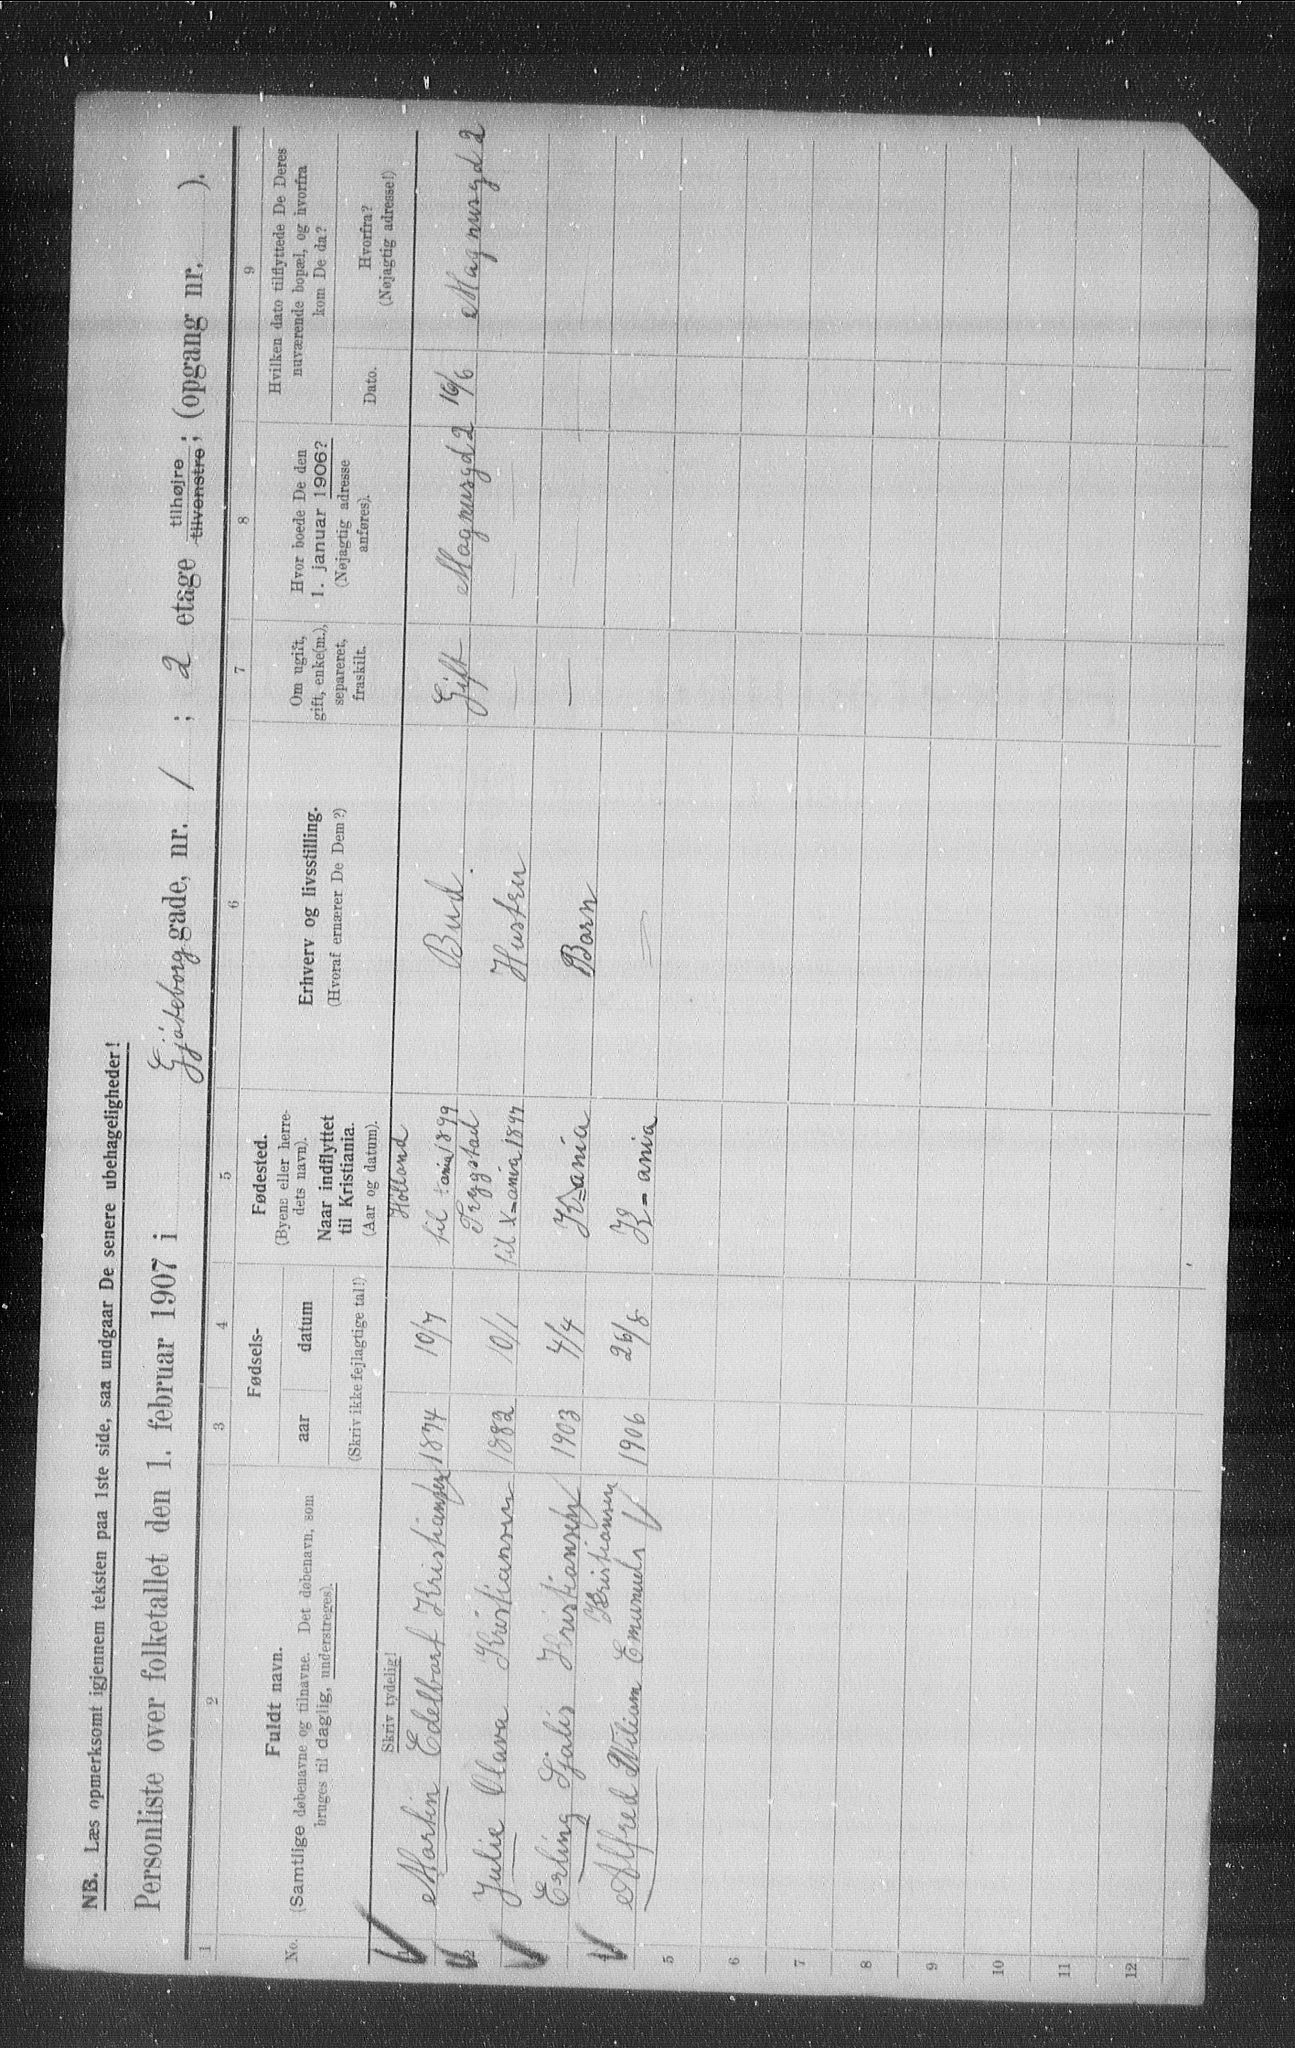 NB. Læs opmerksomt igjennem teksten paa 1ste side, saa undgaar De senere ubehageligheder!
Personliste over folketallet den 1. februar 1907 i Gjøteborg gade, nr. 1 ; 2 etage tilhøjre tilvenstre; (opgang nr. ).
1 2 3 4 5 6 7 8 9
No.
Fuldt navn.
(Samtlige døbenavne og tilnavne. Det døbenavn, som
bruges til daglig, understreges).
Fødsels-
aar datum
(Skriv ikke fejlagtige tal!)
Fødested.
(Byens eller herre-
dets navn).
Naar indflyttet
til Kristiania.
(Aar og datum).
Erhverv og livsstilling.
(Hvoraf ernærer De Dem?)
Om ugift,
gift, enke(m.),
separeret,
fraskilt.
Hvor boede De den
1. januar 1906?
(Nøjagtig adresse
anføres).
Hvilken dato tilflyttede De Deres
nuværende bopæl, og hvorfra
kom De da?
Dato.
Hvorfra?
(Nøjagtig adresse!)
Skriv tydelig!
1 Martin Edelbart Kristiansen 1874 10/7 Holland
til ania 1899 Bud. Gift Magnusgd 2 16/6 Magnusgd 2
2 Julie Olava Kristiansen 1882 10/1 Trygstad
til K-ania 1897 Hustru — —
Erling Kristiansen 1903 4/4 K-ania Barn — —
Kristiansen
Alfred Wiliam Emanuel 1906 26/8 K-ania
5
6
7
8
9
10
11
12